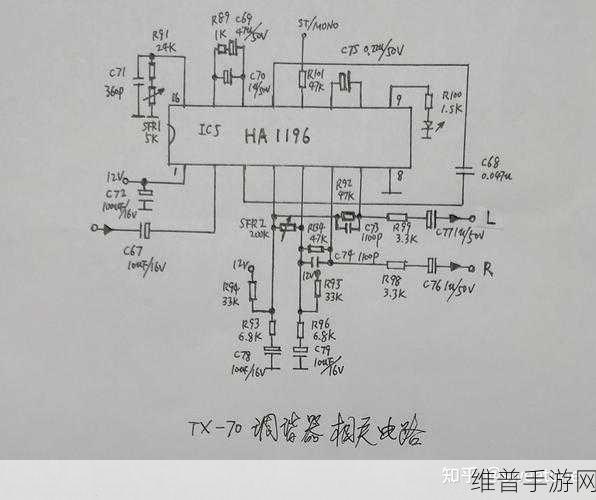 ST/MONO
R89
1K
C69
47u/50V
R91
24K
C75 0.22u/50V
C71
360p
C70
1u/50V
R101
47K
R100
1.5K
16
9
SFR1
5K
IC5
HA1196
1
8
12V
C72
100uF/16V
R92
47K
C68
0.047u
C67
10uF/16V
SFR2
200K
R134
47K
C73
1100p
R99
3.3K
C77 1u/50V
L
12V
C74 1100p
R98
3.3K
C76 1u/50V
R
R94
33K
12V
R95
33K
R93
6.8K
R96
6.8K
C78
10uF/16V
C79
10uF/16V
TX-70 调谐器相关电路
知乎
维普手游网